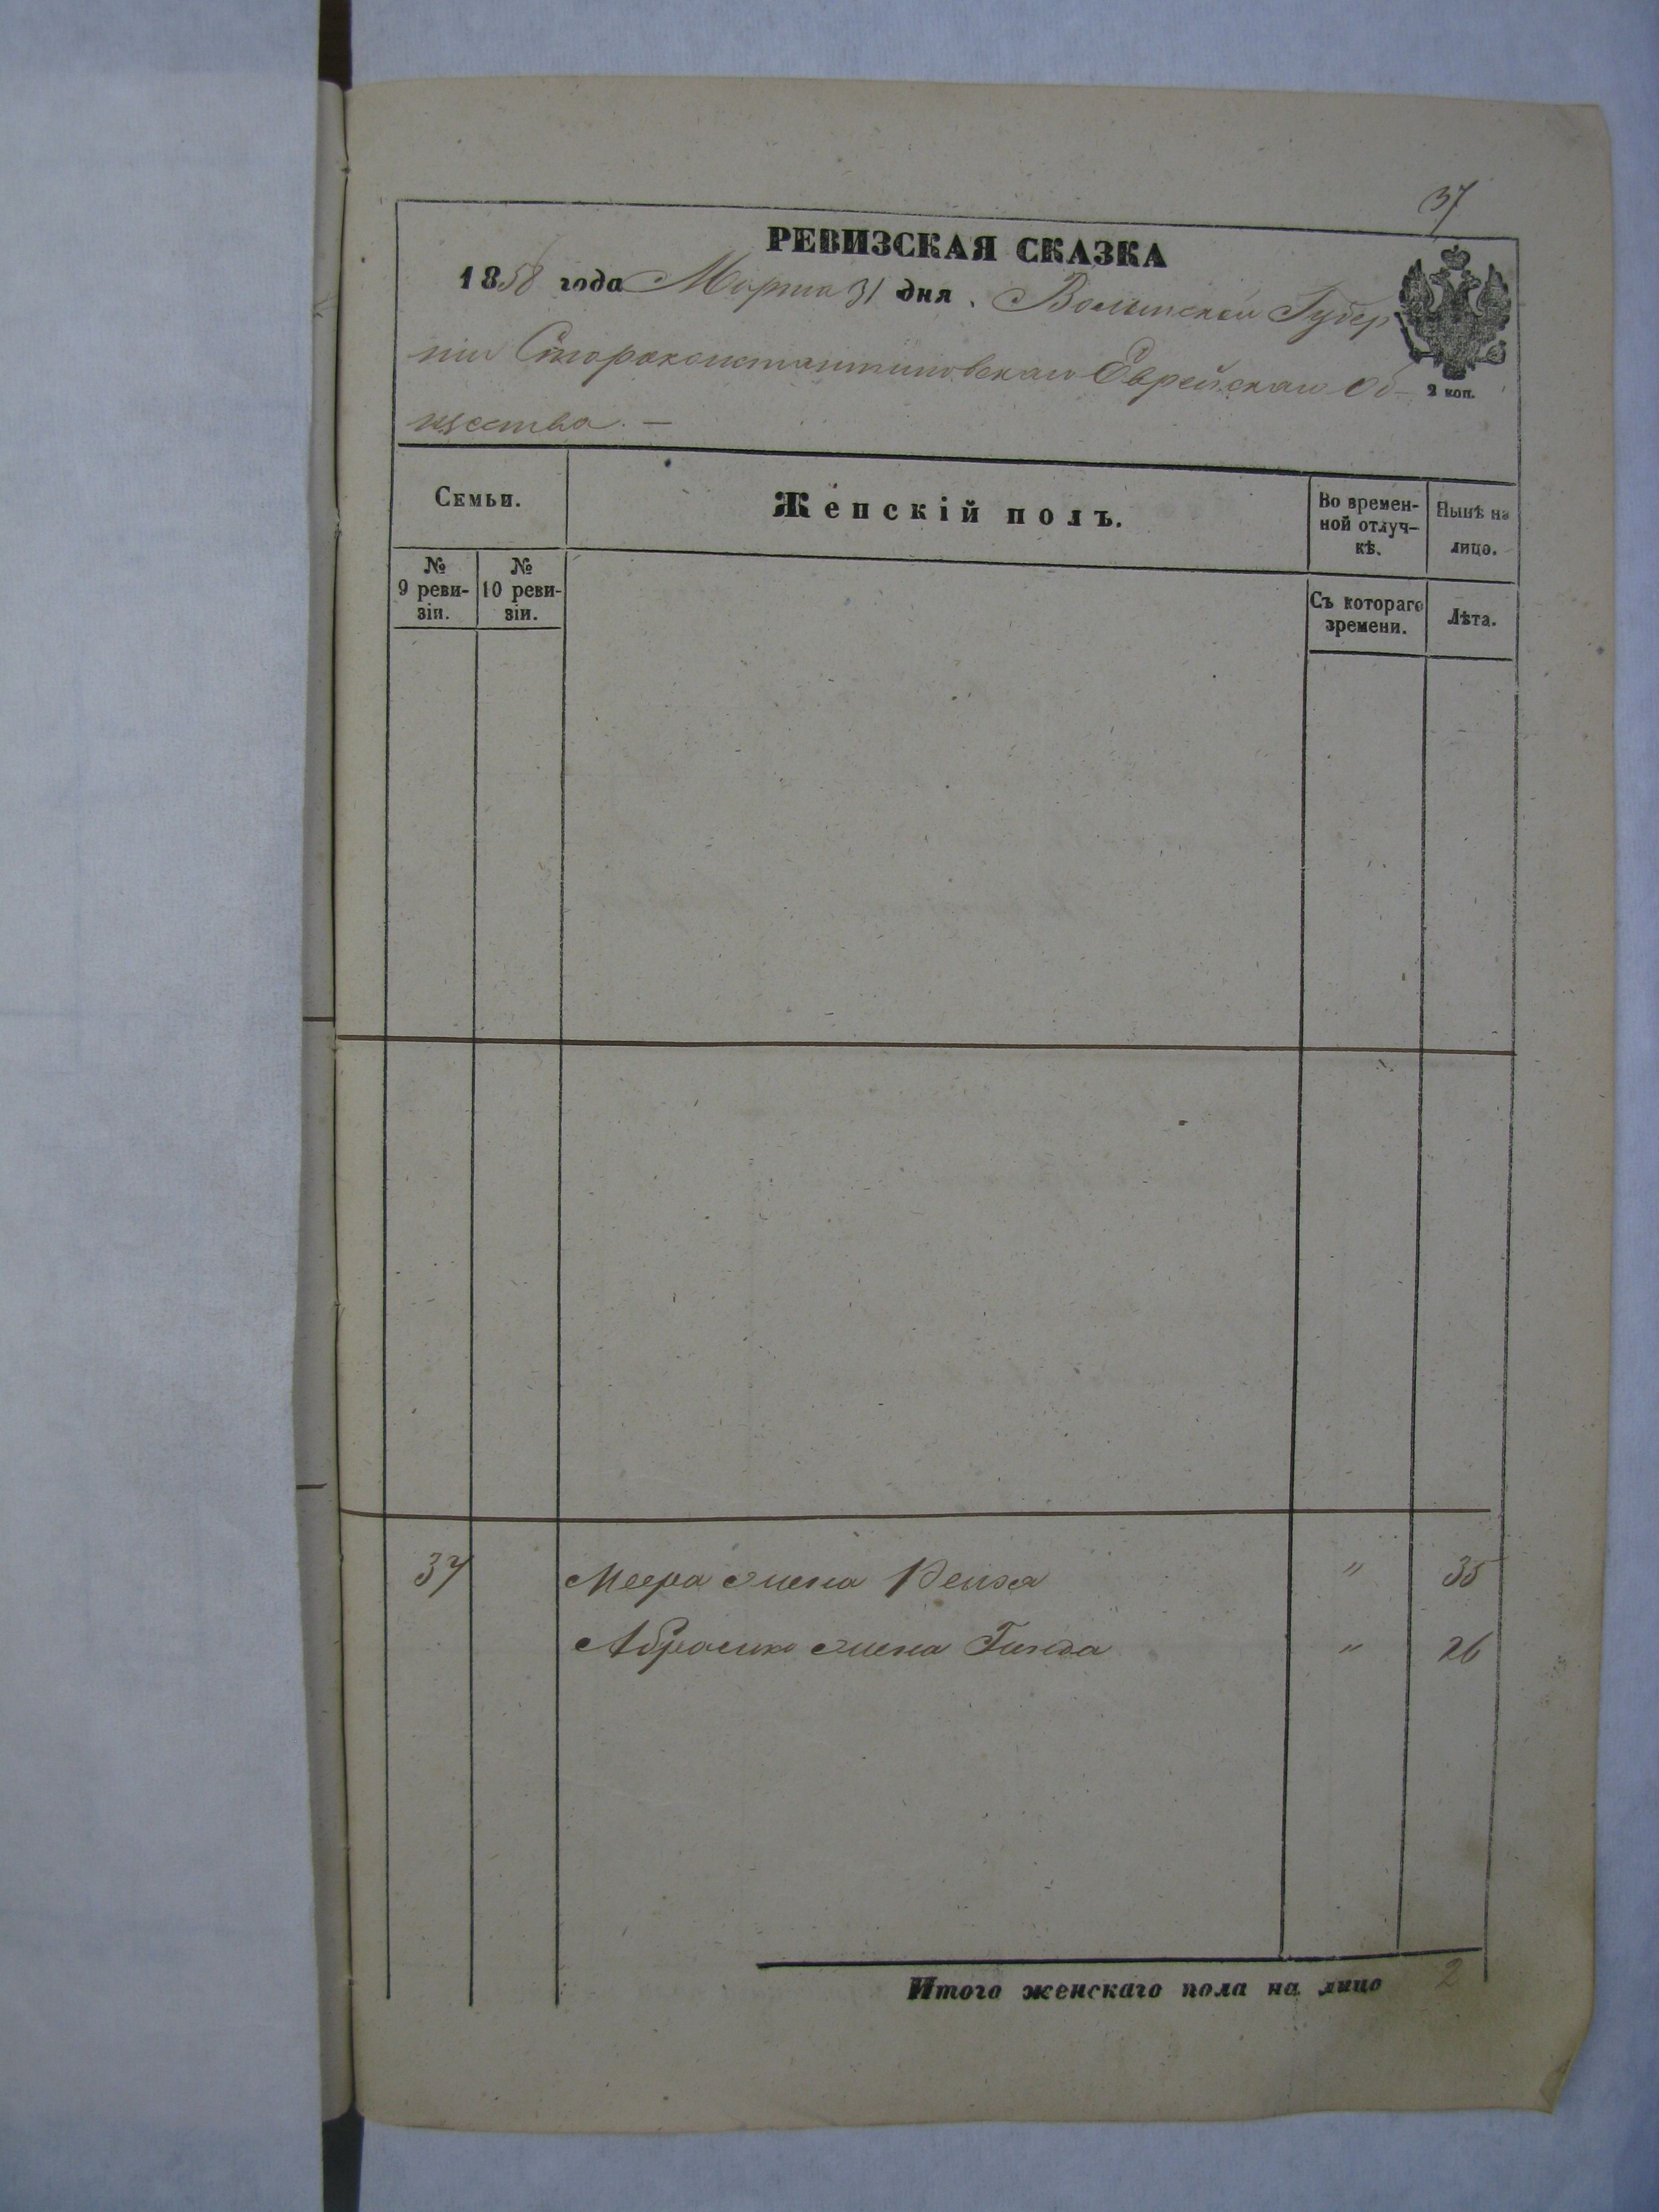 37
РЕВИЗСКАЯ СКАЗКА
1858 года Марта 31 дня. Волынской Губер
ніи Староконстантиновскаго Еврейскаго Об-
щества. —
2 коп.
Семьи.
Женскій полъ.
Во времен-
ной отлуч-
кѣ.
Нынѣ на
лицо.
№
9 реви-
зіи.
№
10 реви-
зіи.
Съ котораго
времени.
Лѣта.
37 Меера жена Рейзя " 35
Абрамко жена Гинда " 26
Итого женскаго пола на лицо 2